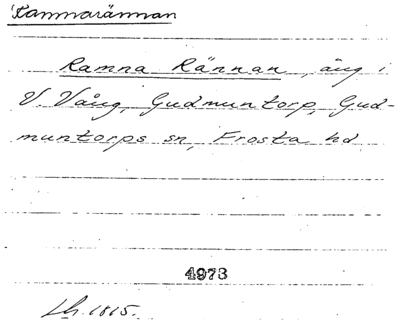 Ramnarännan
Ramna Rännan, äng i
V. Vång, Gudmuntorp, Gud-
muntorps sn, Frosta hd
4973
Lh. 1815.